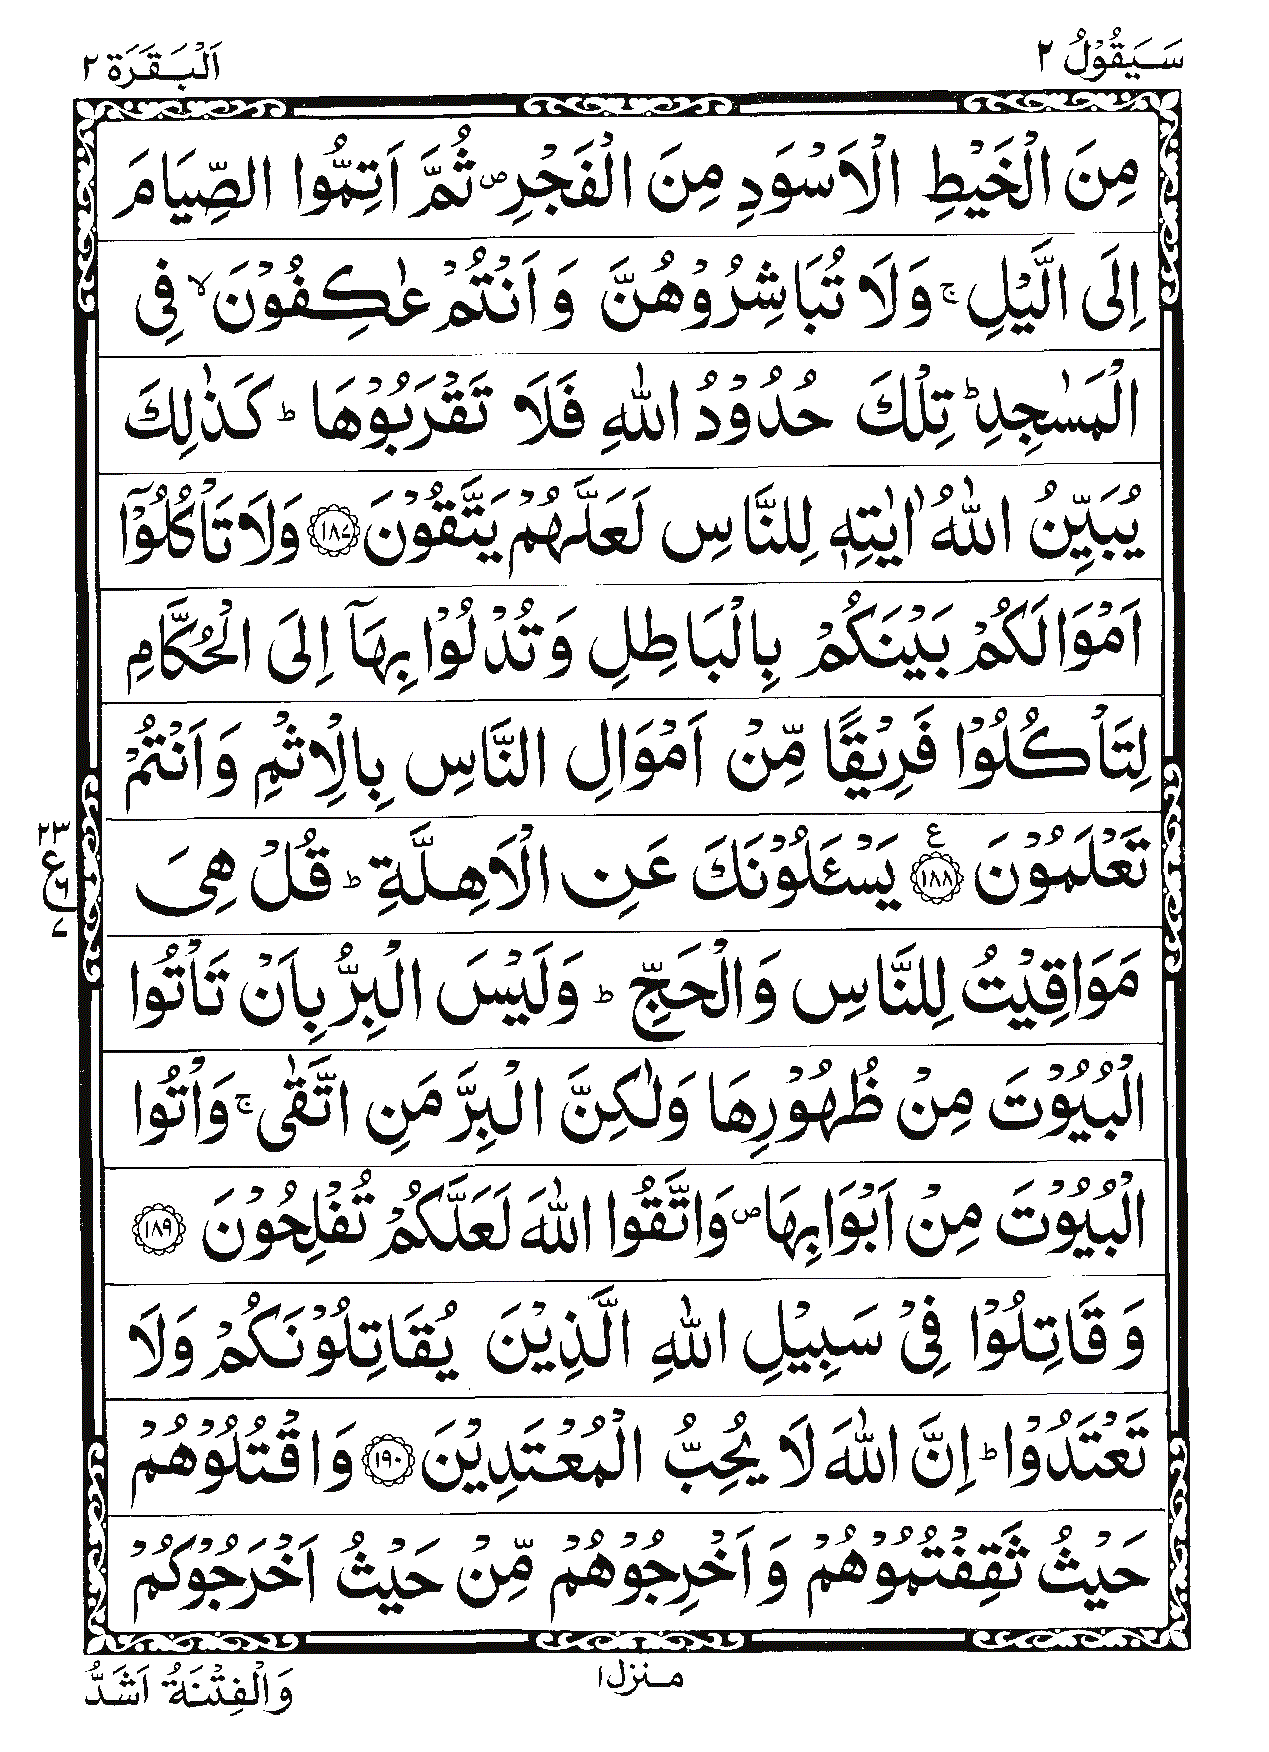 سَيَقُوْلُ ٢
اَلْبَقَرَة ٢
مِنَ الْخَيْطِ الْاَسْوَدِ مِنَ الْفَجْرِ ۪ ثُمَّ اَتِمُّوا الصِّيَامَ
اِلَى الَّيْلِ ۚ وَلَا تُبَاشِرُوْهُنَّ وَاَنْتُمْ عٰكِفُوْنَ ۙ فِى
الْمَسٰجِدِ ؕ تِلْكَ حُدُوْدُ اللّٰهِ فَلَا تَقْرَبُوْهَا ؕ كَذٰلِكَ
يُبَيِّنُ اللّٰهُ اٰيٰتِهٖ لِلنَّاسِ لَعَلَّهُمْ يَتَّقُوْنَ ﴿١٨٧﴾ وَلَا تَاْكُلُوْٓا
اَمْوَالَكُمْ بَيْنَكُمْ بِالْبَاطِلِ وَتُدْلُوْا بِهَآ اِلَى الْحُكَّامِ
لِتَاْكُلُوْا فَرِيْقًا مِّنْ اَمْوَالِ النَّاسِ بِالْاِثْمِ وَاَنْتُمْ
تَعْلَمُوْنَ ﴿١٨٨﴾ ع يَسْـَٔلُوْنَكَ عَنِ الْاَهِلَّةِ ؕ قُلْ هِىَ
٢٣
ع
٦
٧
مَوَاقِيْتُ لِلنَّاسِ وَالْحَجِّ ؕ وَلَيْسَ الْبِرُّ بِاَنْ تَاْتُوا
الْبُيُوْتَ مِنْ ظُهُوْرِهَا وَلٰكِنَّ الْبِرَّ مَنِ اتَّقٰى ۚ وَاْتُوا
الْبُيُوْتَ مِنْ اَبْوَابِهَا ۪ وَاتَّقُوا اللّٰهَ لَعَلَّكُمْ تُفْلِحُوْنَ ﴿١٨٩﴾
وَقَاتِلُوْا فِىْ سَبِيْلِ اللّٰهِ الَّذِيْنَ يُقَاتِلُوْنَكُمْ وَلَا
تَعْتَدُوْا ؕ اِنَّ اللّٰهَ لَا يُحِبُّ الْمُعْتَدِيْنَ ﴿١٩٠﴾ وَاقْتُلُوْهُمْ
حَيْثُ ثَقِفْتُمُوْهُمْ وَاَخْرِجُوْهُمْ مِّنْ حَيْثُ اَخْرَجُوْكُمْ
منزل ١
وَالْفِتْنَةُ اَشَدُّ